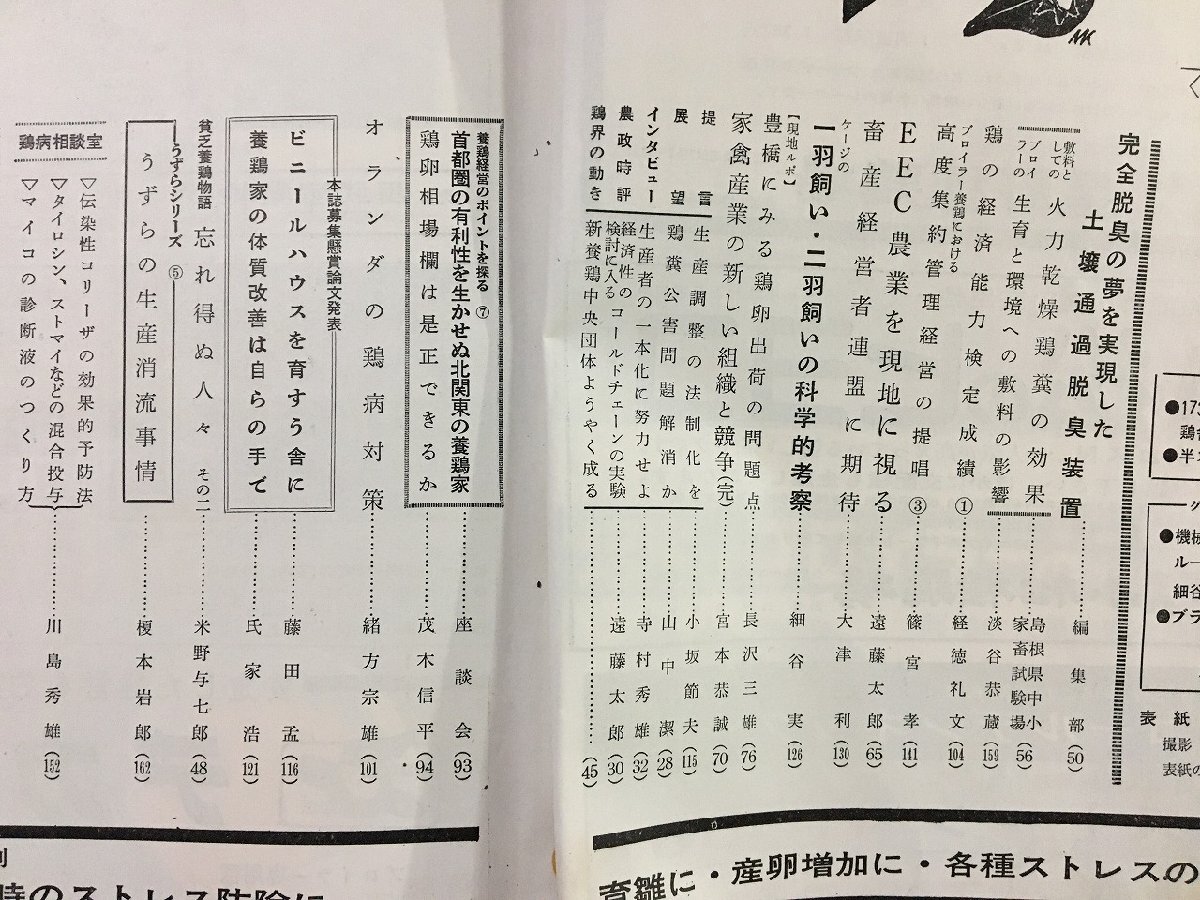 完全脱臭の夢を実現した
土壌通過脱臭装置………編集部(50)
敷料としての 火力乾燥鶏糞の効果………島根県中小家畜試験場(56)
ブロイラーの 生育と環境への敷料の影響………淡谷恭蔵(159)
鶏の経済能力検定成績①………経徳礼文(104)
ブロイラー養鶏における
高度集約管理経営の提唱③………篠宮孝(141)
EEC農業を現地に視る………遠藤太郎(65)
畜産経営者連盟に期待………大津利(130)
ケージの
一羽飼い・二羽飼いの科学的考察………細谷実(126)
【現地ルポ】
豊橋にみる鶏卵出荷の問題点………長沢三雄(76)
家禽産業の新しい組織と競争(完)………宮本恭誠(70)
提言 生産調整の法制化を………小坂節夫(115)
展望 鶏糞公害問題解消か………山中潔(28)
インタビュー 生産者の一本化に努力せよ………寺村秀雄(32)
農政時評 経済性の検討に入る コールドチェーンの実験………遠藤太郎(30)
鶏界の動き 新養鶏中央団体ようやく成る………(45)
養鶏経営のポイントを探る⑦
首都圏の有利性を生かせぬ北関東の養鶏家………座談会(93)
鶏卵相場欄は是正できるか………茂木信平(94)
オランダの鶏病対策………緒方宗雄(101)
本誌募集懸賞論文発表
ビニールハウスを育すう舎に………藤田孟(116)
養鶏家の体質改善は自らの手で………氏家浩(121)
貧乏養鶏物語 忘れ得ぬ人々 その二………米野与七郎(48)
うずらシリーズ⑤
うずらの生産消流事情………榎本岩郎(162)
鶏病相談室
▽伝染性コリーザの効果的予防法
▽タイロシン、ストマイなどの混合投与
▽マイコの診断液のつくり方
………川島秀雄(152)
●17
鶏舎
●半
●機械
ルー
細谷
●ブラ
表紙
撮影
表紙の
育雛に・産卵増加に・各種ストレスの
時のストレス防除に